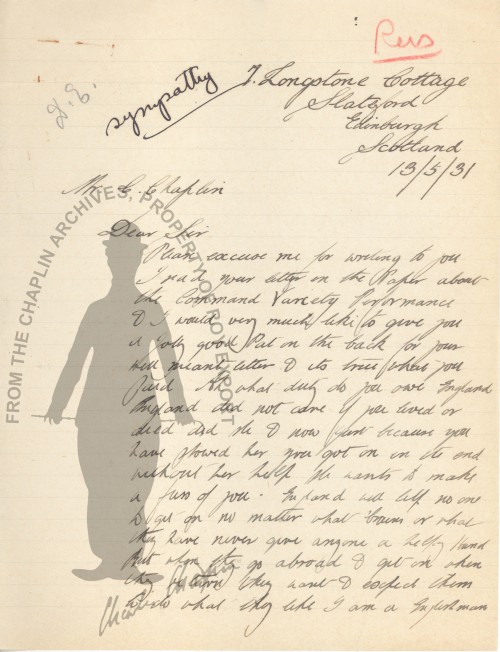 Pers
D.E.
sympathy
7. Longstone Cottage
Slateford
Edinburgh
Scotland
13/5/31
Mr C. Chaplin
Dear Sir
Please excuse me for writing to you
I read your letter in the Paper about
the Command Variety Performance
& I would very much like to give you
a good Pat on the back for your
well meant letter & its true what you
said. what duty do you owe England
England did not care if you lived or
died did she & now just because you
have showed her you got on in the end
without her help. She wants to make
a fuss of you. England will help no one
to get on no matter what brains or what
they have never give anyone a help hand
But when they go abroad & get on when
they return they want & expect them
to do what they like I am a Englishman
FROM THE CHAPLIN ARCHIVES, PROPERTY OF ROY EXPORT